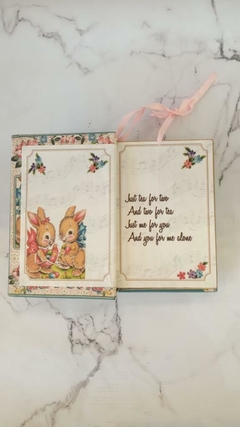 Just tea for two
And two for tea
Just me for you
And you for me alone